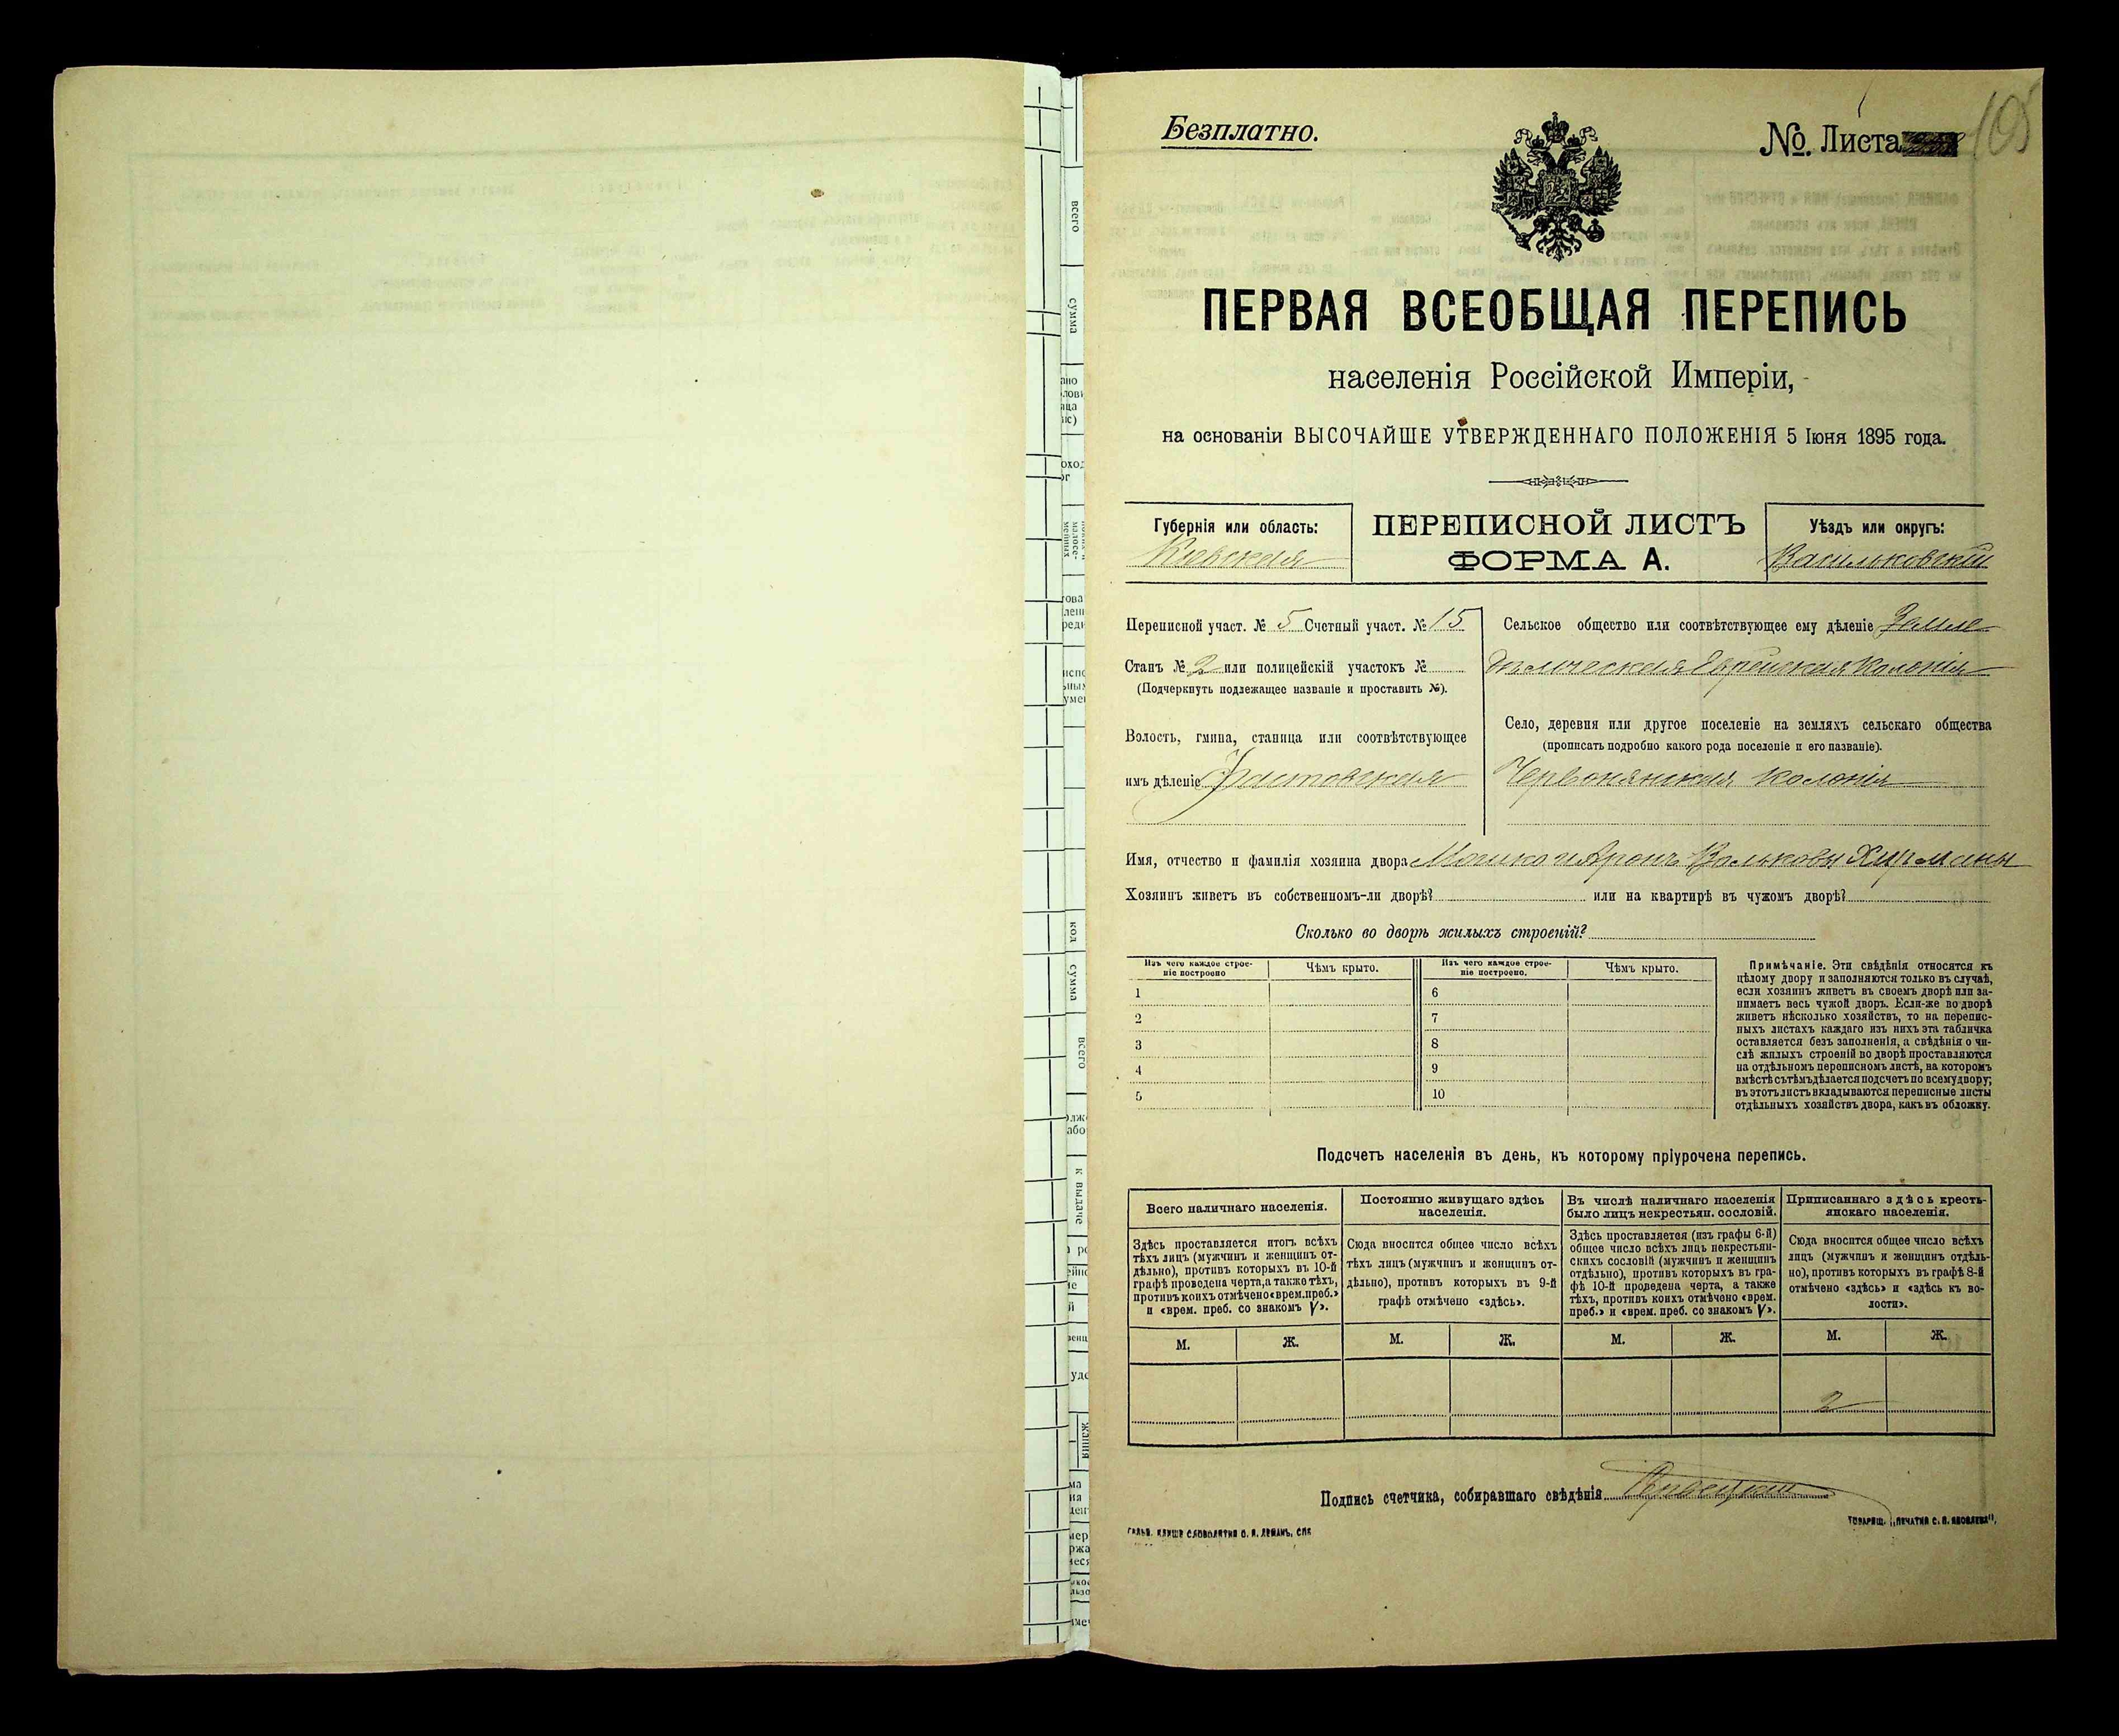 Безплатно.
№. Листа 105
ПЕРВАЯ ВСЕОБЩАЯ ПЕРЕПИСЬ
населенія Россійской Имперіи,
на основаніи ВЫСОЧАЙШЕ УТВЕРЖДЕННАГО ПОЛОЖЕНІЯ 5 Іюня 1895 года.
Губернія или область:
Кіевская
ПЕРЕПИСНОЙ ЛИСТЪ
ФОРМА А.
Уѣздъ или округъ:
Васильковскій
Переписной участ. № 5 Счетный участ. № 15
Станъ № 2 или полицейскій участокъ №
(Подчеркнуть подлежащее названіе и проставить №).
Волость, гмина, станица или соотвѣтствующее
имъ дѣленіе Фастовская
Сельское общество или соотвѣтствующее ему дѣленіе Земле
дѣльческая Еврейская Колонія
Село, деревня или другое поселеніе на земляхъ сельскаго общества
(прописать подробно какого рода поселеніе и его названіе).
Червонянская колонія
Имя, отчество и фамилія хозяина двора Мошко и Аронъ Вольковы
Хозяинъ живетъ въ собственномъ-ли дворѣ? или на квартирѣ въ чужомъ дворѣ?
Сколько во дворѣ жилыхъ строеній?
Изъ чего каждое строе-
ніе построено
Чѣмъ крыто.
Изъ чего каждое строе-
ніе построено.
Чѣмъ крыто.
1 6
2 7
3 8
4 9
5 10
Примѣчаніе. Эти свѣдѣнія относятся къ
цѣлому двору и заполняются только въ случаѣ,
если хозяинъ живетъ въ своемъ дворѣ или за-
нимаетъ весь чужой дворъ. Если-же во дворѣ
живетъ нѣсколько хозяйствъ, то на перепис-
ныхъ листахъ каждаго изъ нихъ эта табличка
оставляется безъ заполненія, а свѣдѣнія о чи-
слѣ жилыхъ строеній во дворѣ проставляются
на отдѣльномъ переписномъ листѣ, на которомъ
вмѣстѣ съ тѣмъ дѣлается подсчетъ по всему двору;
въ этотъ листъ вкладываются переписные листы
отдѣльныхъ хозяйствъ двора, какъ въ обложку.
Подсчетъ населенія въ день, къ которому пріурочена перепись.
Всего наличнаго населенія.
Здѣсь проставляется итогъ всѣхъ
тѣхъ лицъ (мужчинъ и женщинъ от-
дѣльно), противъ которыхъ въ 10-й
графѣ проведена черта, а также тѣхъ,
противъ коихъ отмѣчено «врем. преб.»
и «врем. преб. со знакомъ V».
Постоянно живущаго здѣсь
населенія.
Сюда вносится общее число всѣхъ
тѣхъ лицъ (мужчинъ и женщинъ от-
дѣльно), противъ которыхъ въ 9-й
графѣ отмѣчено «здѣсь».
Въ числѣ наличнаго населенія
было лицъ некрестьян. сословій.
Здѣсь проставляется (изъ графы 6-й)
общее число всѣхъ лицъ некрестьян-
скихъ сословій (мужчинъ и женщинъ
отдѣльно), противъ которыхъ въ гра-
фѣ 10-й проведена черта, а также
тѣхъ, противъ коихъ отмѣчено «врем.
преб.» и «врем. преб. со знакомъ V».
Приписаннаго здѣсь кресть-
янскаго населенія.
Сюда вносится общее число всѣхъ
лицъ (мужчинъ и женщинъ отдѣль-
но), противъ которыхъ въ графѣ 8-й
отмѣчено «здѣсь» и «здѣсь въ во-
лости».
М. Ж. М. Ж. М. Ж. М. Ж.
2
Подпись счетчика, собиравшаго свѣдѣнія
всего
сумма
код
сумма
всего
к выдаче